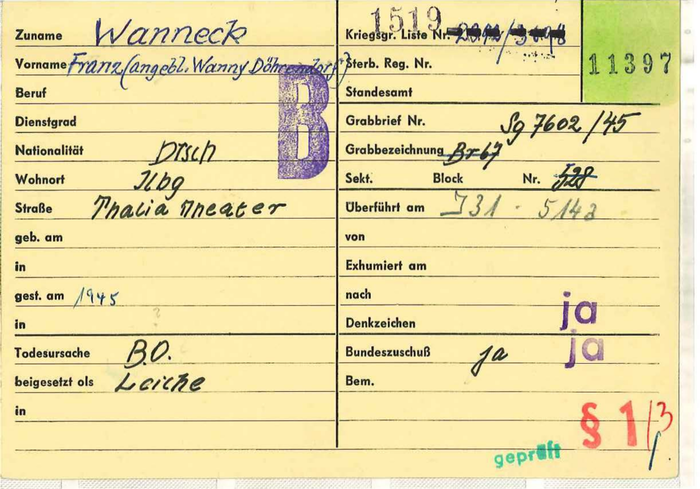 1519
11397
Zuname Wanneck
Vorname Franz (angebl. Wanny Döhrendorf)
Beruf
Dienstgrad
Nationalität Dtsch
Wohnort Hbg
Straße Thalia Theater
geb. am
in
gest. am 1945
in ?
Todesursache B.O.
beigesetzt als Leiche
in
B
Kriegsgr. Liste Nr.
Sterb. Reg. Nr.
Standesamt
Grabbrief Nr. Sg 7602/45
Grabbezeichnung Br 67
Sekt. Block Nr. 528
Überführt am J31 - 5143
von
Exhumiert am
nach
Denkzeichen ja
ja
Bundeszuschuß ja
Bem.
§ 1/3
geprüft